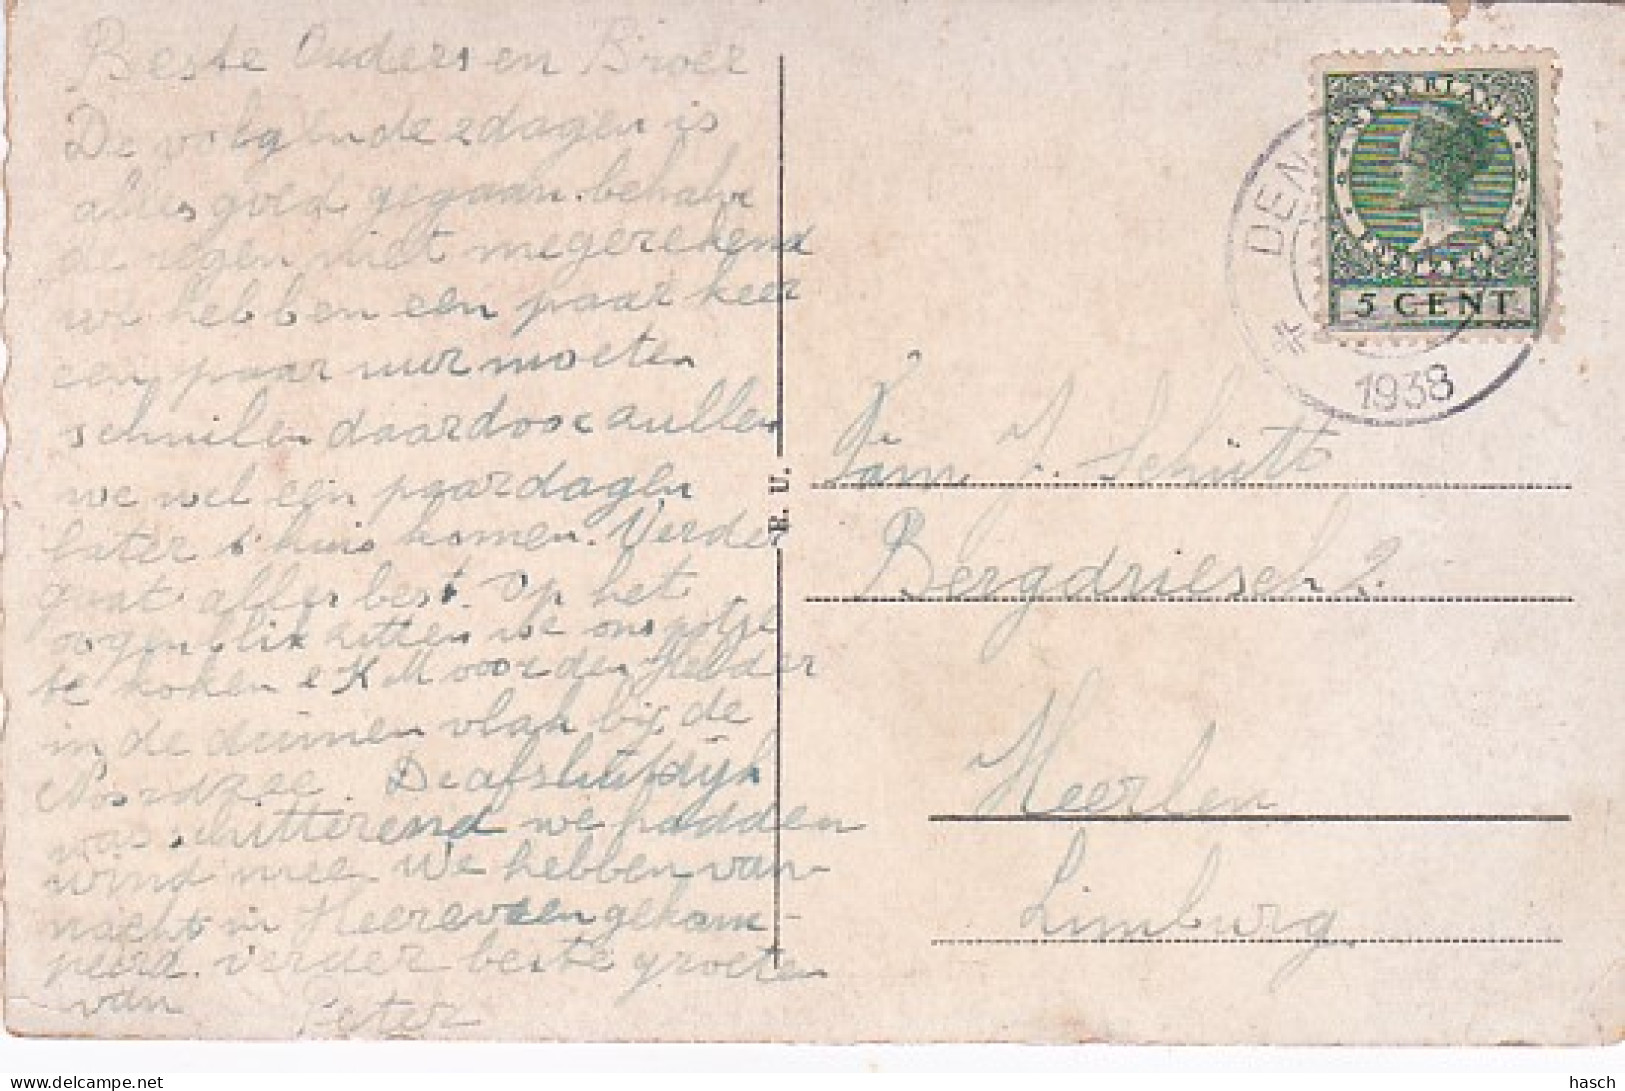 Beste Ouders en Broer
De volgende 2 dagen is
alles goed gegaan. behalve
de regen niet megerekend
we hebben een paar keer
een paar uur moeten
schuilen daardoor zullen
we wel een paar dagen
later t'huis komen. Verder
gaat alles best. Op het
oogenblik zitten we ons potje
te koken KM voor den Helder
in de duinen vlak bij de
Noordzee. De afsluitdijk
was schitterend we hadden
wind mee We hebben van-
nacht in Heereveen gekam-
peerd. Verder beste groeten
van Peter
E. U.
NEDERLAND
POSTZEGEL
5 CENT
DEN
1938
Fam J. Schütt
Bergdriesch 2.
Heerlen
Limburg.
www.delcampe.net
hasch